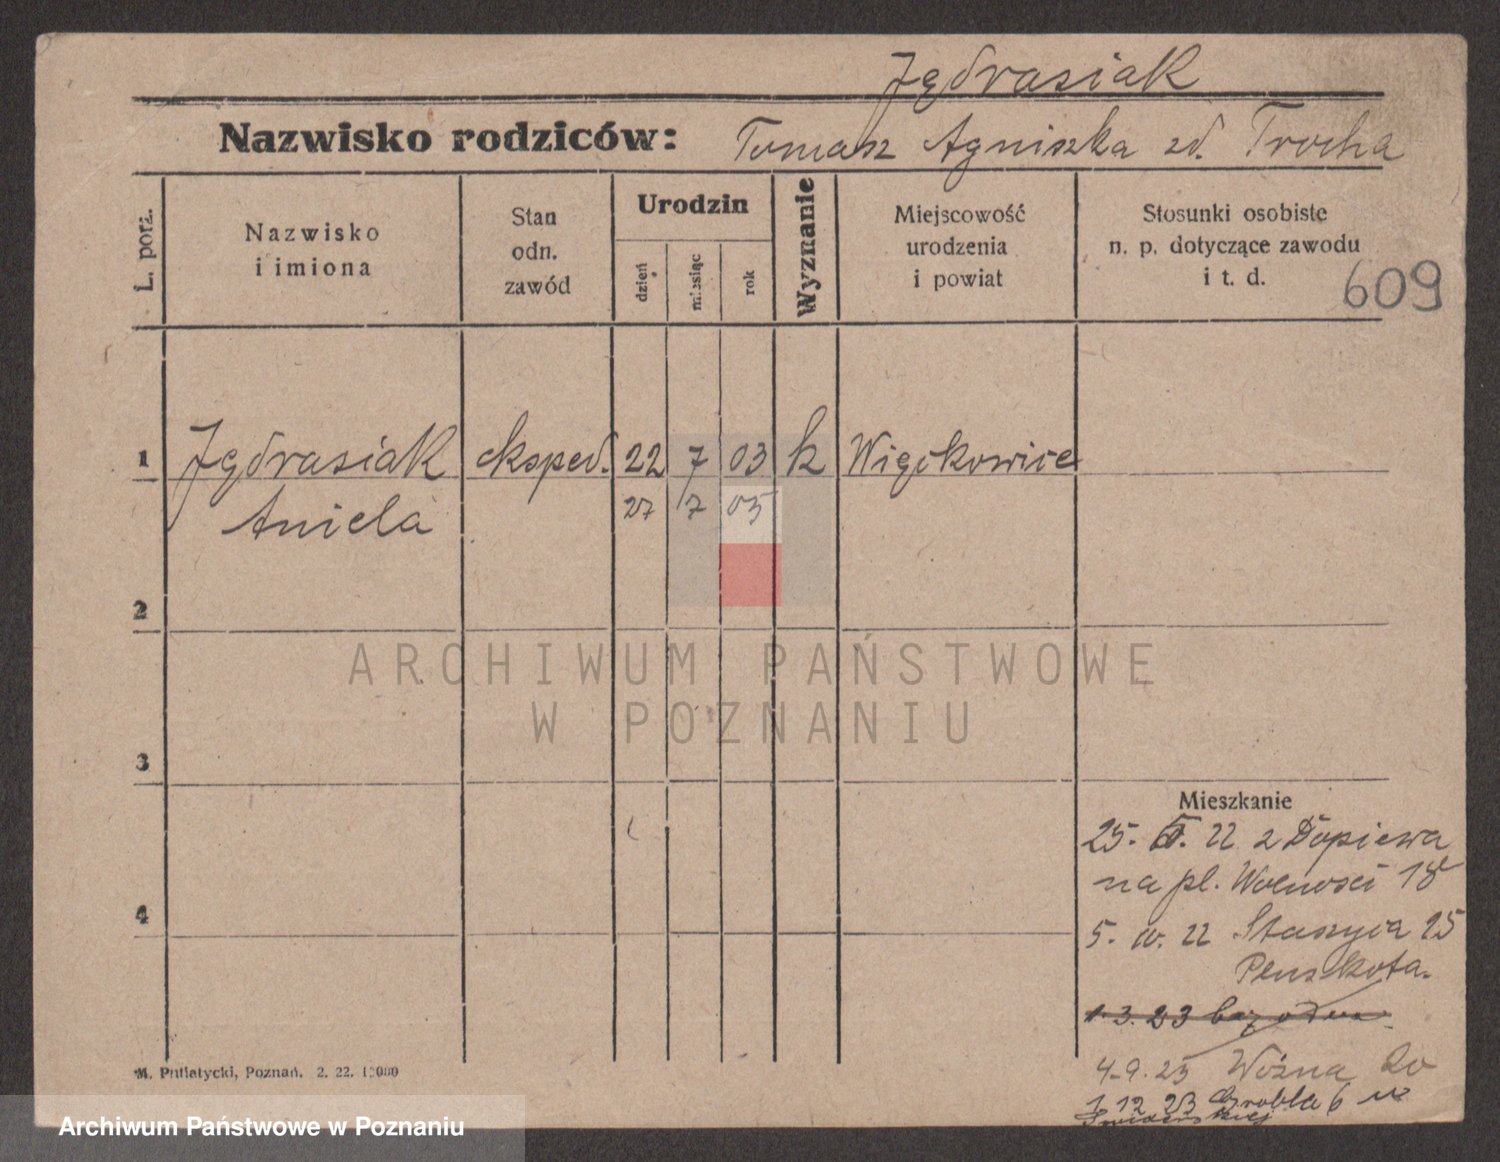 Jędrasiak
Nazwisko rodziców: Tomasz Agniszka zd. Trocha
L. porz.
Nazwisko
i imiona
Stan
odn.
zawód
Urodzin
dzień
miesiąc
rok
Wyznanie
Miejscowość
urodzenia
i powiat
Stosunki osobiste
n. p. dotyczące zawodu
i t. d.
609
1 Jędrasiak eksped. 22 7 03 k Więckowice
Aniela 27 7 05
2
ARCHIWUM PAŃSTWOWE
W POZNANIU
3
Mieszkanie
25. 22 z Dopiewa
na pl. Wolności 18
4
5. IV. 22 Staszyca 25
1.3.23 bez odm.
4.9.23 Woźna 20
1 12 23 Grobla 6 u
M. Putiatycki, Poznań. 2. 22. 15000
Archiwum Państwowe w Poznaniu